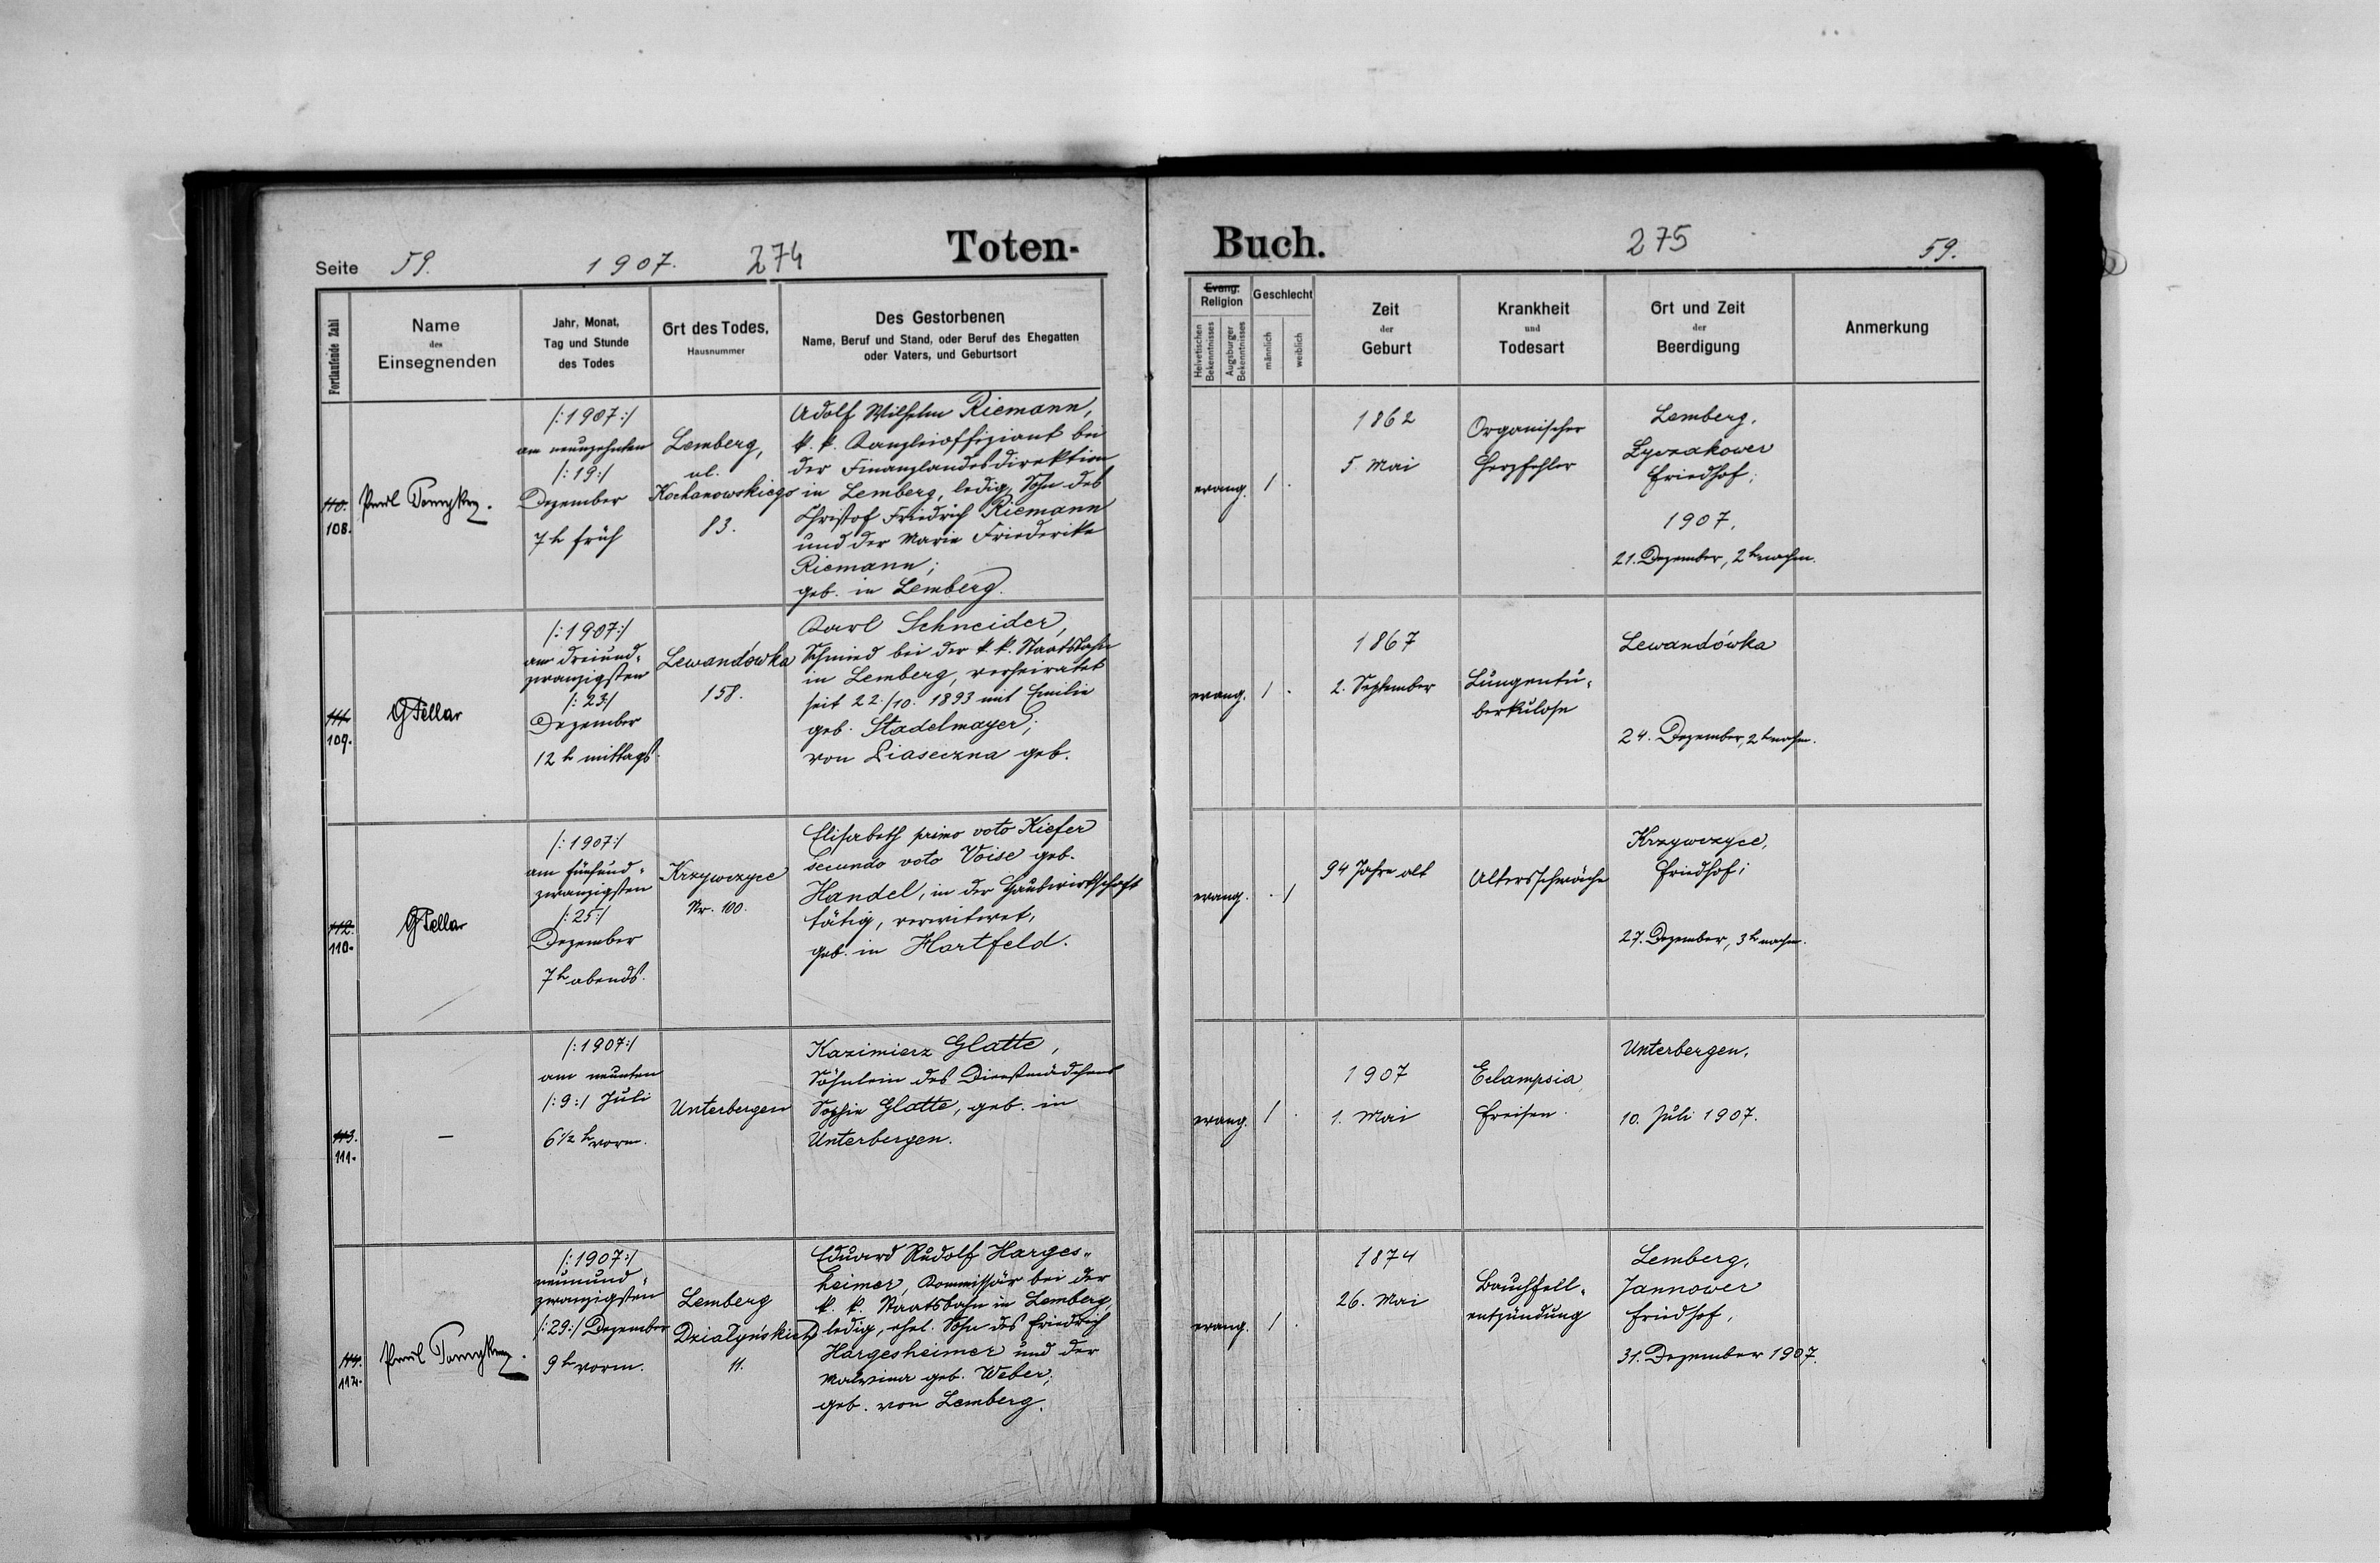 Toten-
Seite 59. 1907. 274
Fortlaufende Zahl
Name
des
Einsegnenden
Jahr, Monat,
Tag und Stunde
des Todes
Ort des Todes,
Hausnummer
Des Gestorbenen
Name, Beruf und Stand, oder Beruf des Ehegatten
oder Vaters, und Geburtsort
110.
108.
Paul
/:1907:/
am neunzehnten
/:19:/
Dezember
7 h früh
Lemberg,
ul.
Kochanowskiego
83.
Adolf Wilhelm Riemann,
k. k. Kanzleioffiziant bei
der Finanzlandesdirektion
in Lemberg, ledig, Sohn des
Christof Friedrich Riemann
und der Marie Friederike
Riemann;
geb. in Lemberg.
111.
109.
/:1907:/
am dreiund-
zwanzigsten
/:23:/
Dezember
12 h mittags.
Lewandówka
158.
Karl Schneider,
Schmied bei der k. k. Staatsbahn
in Lemberg, verheiratet
seit 22./10. 1893 mit Emilie
geb. Stadelmayer;
von Piaseczna geb.
112.
110.
/:1907:/
am fünfund-
zwanzigsten
/:25:/
Dezember
7 h abends.
Krzywczyce
Nr. 100.
Elisabeth primo voto Kiefer
secundo voto Voise geb.
Handel, in der Hauswirtschaft
tätig, verwitwet,
geb. in Hartfeld.
113.
111.
—
/:1907:/
am neunten
/:9:/ Juli
6 1/2 h vorm.
Unterbergen
Kazimierz Glatte,
Söhnlein des Dienstmädchens
Sophie Glatte, geb. in
Unterbergen.
114.
112.
Paul
/:1907:/
neunund-
zwanzigsten
/:29:/ Dezember
9 h vorm.
Lemberg
Działyńskich
11.
Eduard Rudolf Harges-
heimer, Kommissär bei der
k. k. Staatsbahn in Lemberg,
ledig, ehel. Sohn des Friedrich
Hargesheimer und der
Malwina geb. Weber;
geb. von Lemberg.
Buch.
275 59.
Evang.
Religion
Helvetischen Bekenntnisses
Augsburger Bekenntnisses
Geschlecht
männlich
weiblich
Zeit
der
Geburt
Krankheit
und
Todesart
Ort und Zeit
der
Beerdigung
Anmerkung
evang. 1 .
1862
5 Mai
Organischer
Herzfehler
Lemberg,
Łyczakower
Friedhof;
1907,
21. Dezember, 2 h nachm.
evang. 1 .
1867
2. September
Lungentu-
berkulose
Lewandówka
24. Dezember, 2 h nachm.
evang. . 1
94 Jahre alt
Altersschwäche
Krzywczyce,
Friedhof;
27. Dezember, 3 h nachm.
evang. 1 .
1907
1. Mai
Eclampsia,
Freisen.
Unterbergen,
10. Juli 1907.
evang. 1 .
1874
26. Mai
Bauchfell-
entzündung
Lemberg,
Jannower
Friedhof,
31. Dezember 1907.